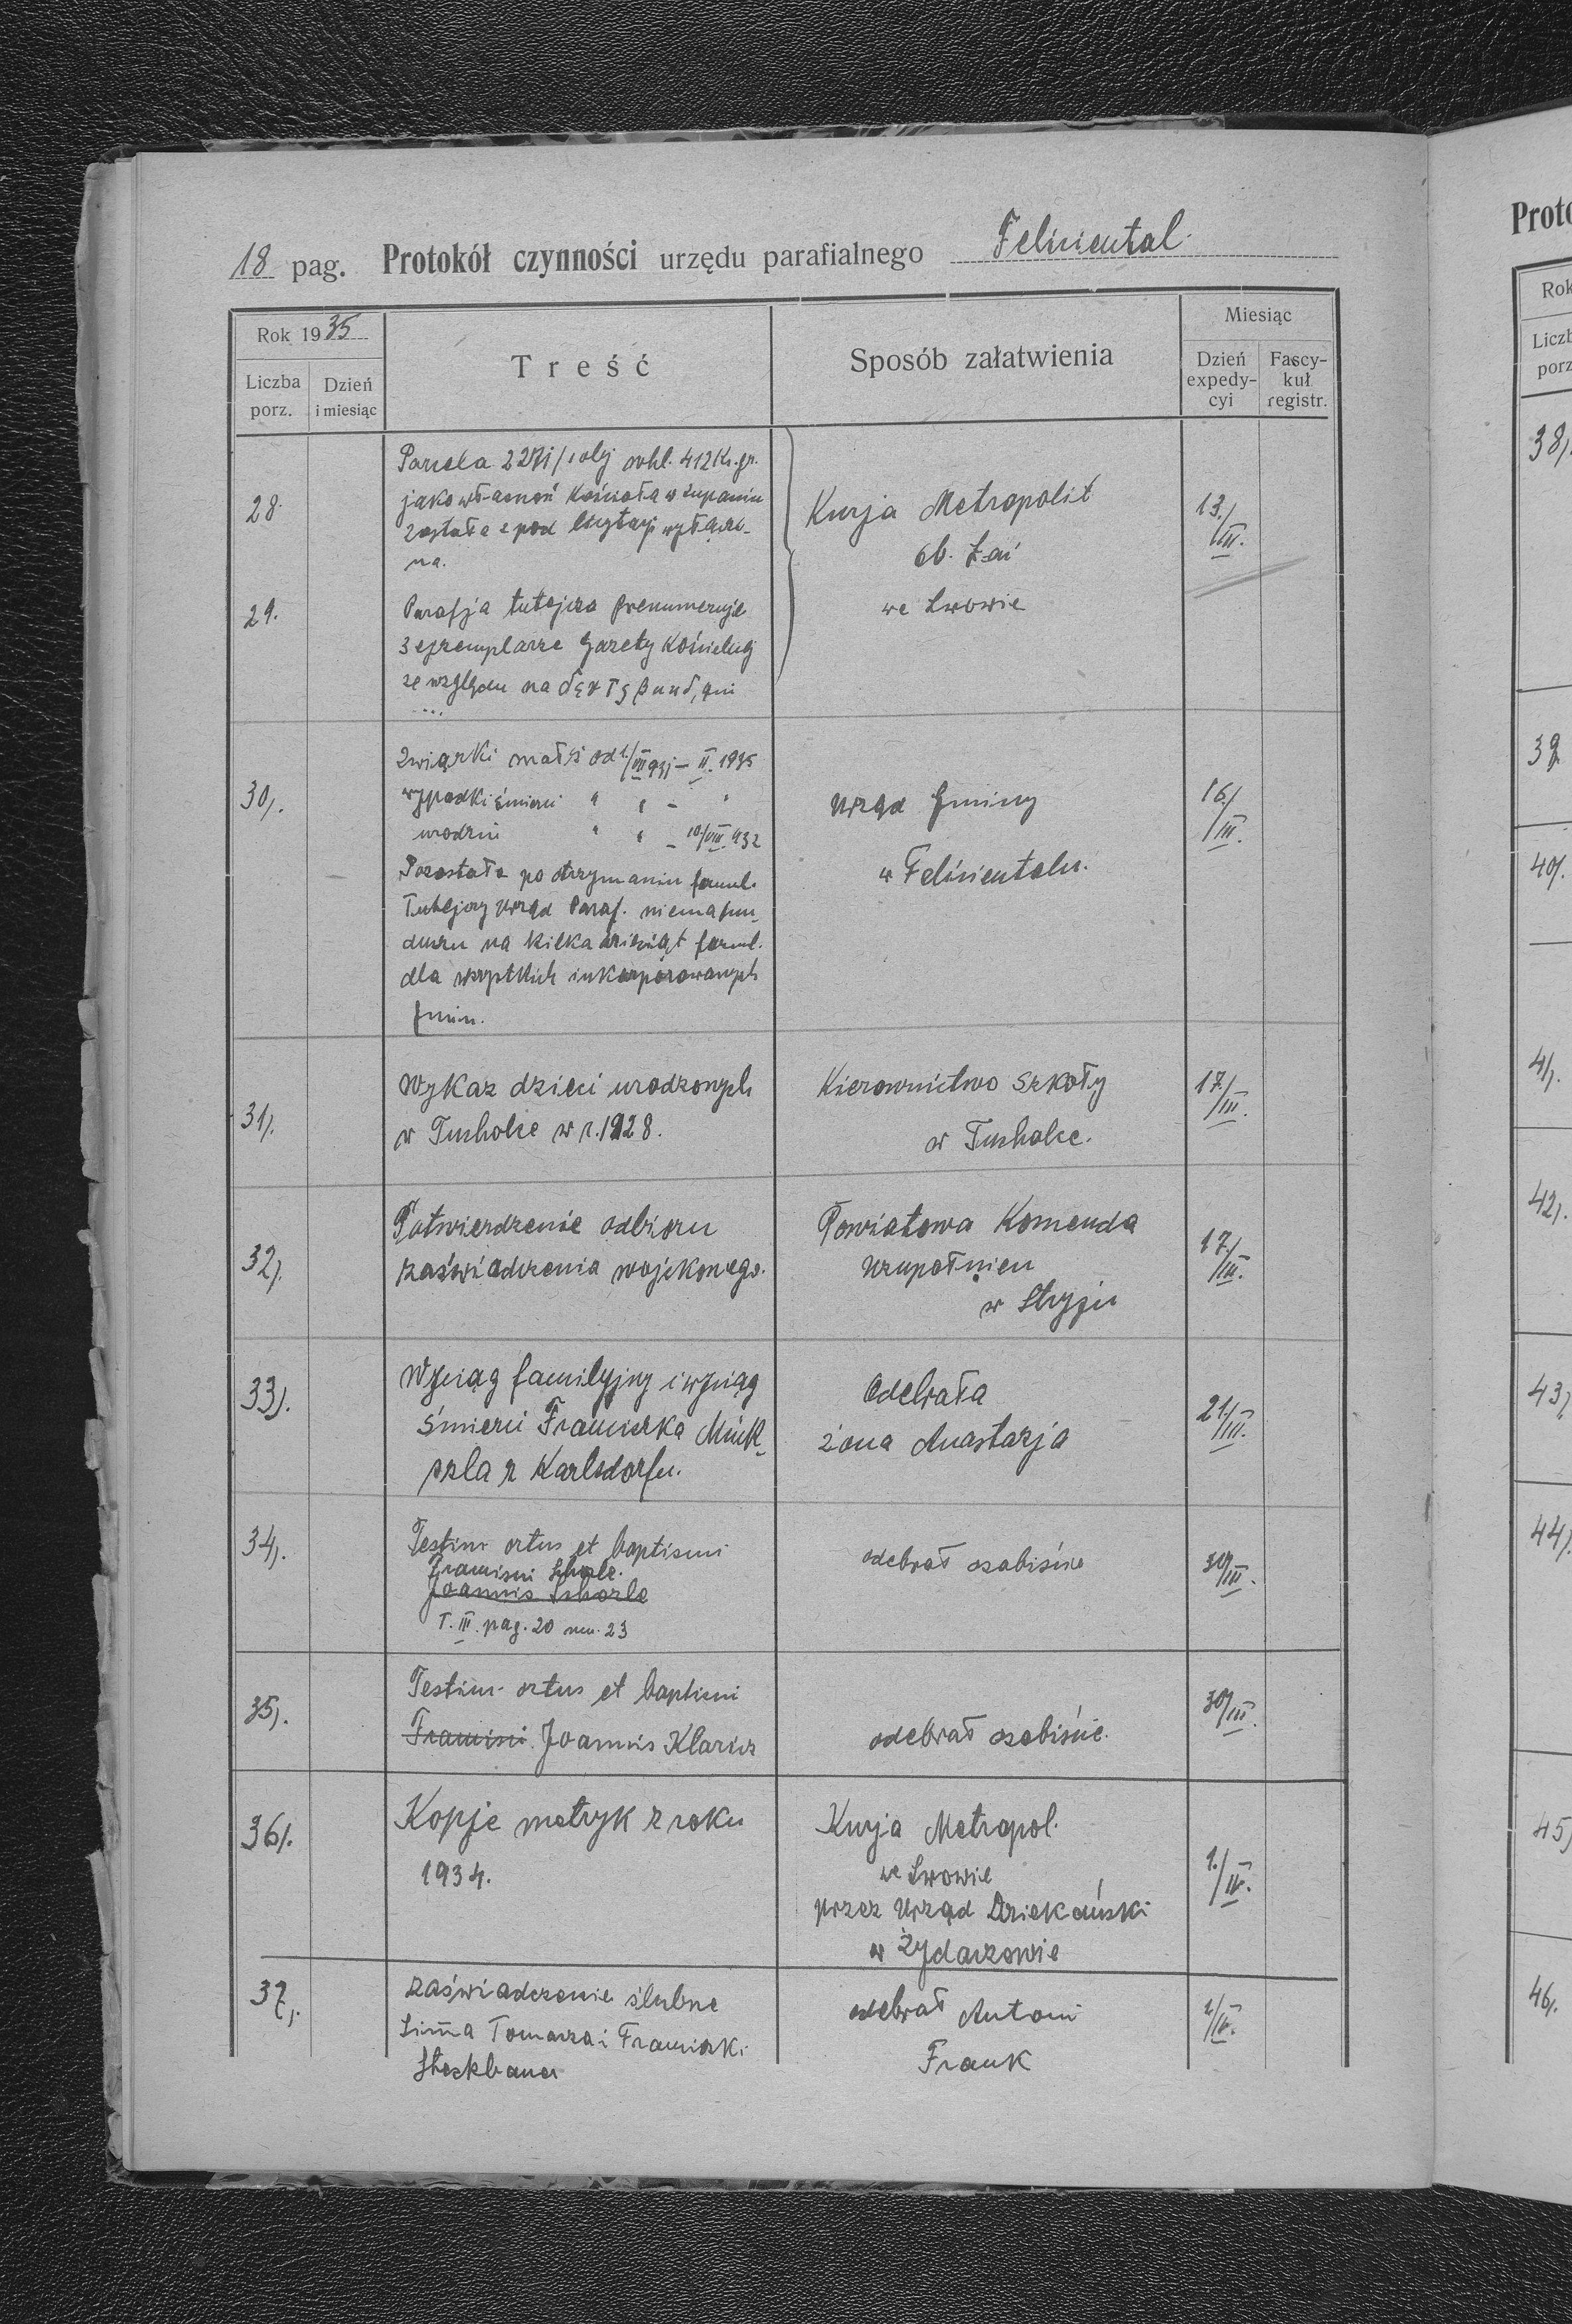 18 pag. Protokół czynności urzędu parafialnego Feliciental.
Rok 1935
Liczba porz.
Dzień i miesiąc
Treść
Sposób załatwienia
Miesiąc
Dzień expedy-cyi
Fascy-kuł registr.
28.
Parcela 2271/1 obj. 412 K. gr.
jako własność Kościoła w Łupaniu
została z pod licytacji wyłączo-
na.
Kurja Metropolit
ob. Łać
we Lwowie
13./III.
29.
Parafja tutejsza prenumeruje
3 egzemplarze Gazety Kościelnej
ze względu na
...
30).
Związki małż od 1./VII 931 – II. 1935
wypadki śmierci " " – "
urodzin " " – 10/VIII. 932
Pozostałe po otrzymaniu formul.
Tutejszy Urząd Paraf. niema fun-
duszu na kilkadziesiąt formul.
dla wszystkich inkorporowanych
gmin.
Urząd Gminny
w Felicientalu.
16./III.
31).
Wykaz dzieci urodzonych
w Tucholce w r. 1928.
Kierownictwo Szkoły
w Tucholce.
17./III.
32).
Potwierdzenie odbioru
zaświadczenia wojskowego.
Powiatowa Komenda
Uzupełnień
w Stryju
17./III.
33).
Wyciąg familyjny i wyciąg
śmierci Franciszka Mück-
szla z Karlsdorfu.
Odebrała
żona Anastazja
21./III.
34).
Testim ortus et baptismi
Francisci Schorle.
Joannis Schorle
T. III. pag. 20 nm. 23
odebrał osobiście
30/III.
35).
Testim. ortus et baptismi
Francisci Joannis Klarisz
odebrał osobiście.
30/III.
36).
Kopje metryk z roku
1934.
Kurja Metropol.
we Lwowie
przez Urząd Dziekański
w Żydaczowie
1./IV.
37).
zaświadczenie ślubne
Tomasza i Franciszki
Steckbauer
odebrał Antoni
Frank
1/IV.
Proto
Rok
Liczb
porz
38).
39
40).
41).
42).
43).
44).
45)
46).